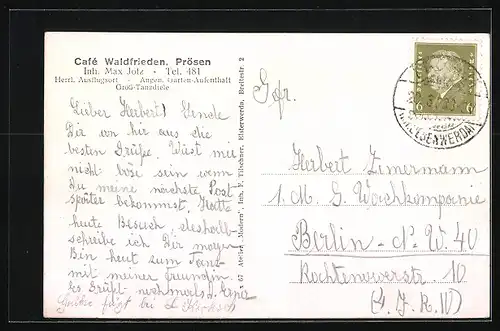 Café Waldfrieden, Prösen
Inh. Max Jotz • Tel. 481
Herrl. Ausflugsort - Angen. Garten-Aufenthalt
Groß-Tanzdiele
Lieber Herbert! Sende
Dir von hier aus die
besten Grüße. Wirst mir
nicht böse sein wenn
Du meine nächste Post
später bekommst. Hatte
heute Besuch, deshalb
schreibe ich Dir morgen
Bin heut zum Tanz
mit meiner Freundin.
Es grüßt nochmals d.
Grüße fügt bei
z 67 Atelier „Modern", Inh. F. Tilschner, Elsterwerda, Breitestr. 2
Gefr.
Herbert Zimermann
1. M. G. Wachkompanie
Berlin - N. W. 40
Rathenowerstr 10
6 6
(KR. LIEBENWERDA)